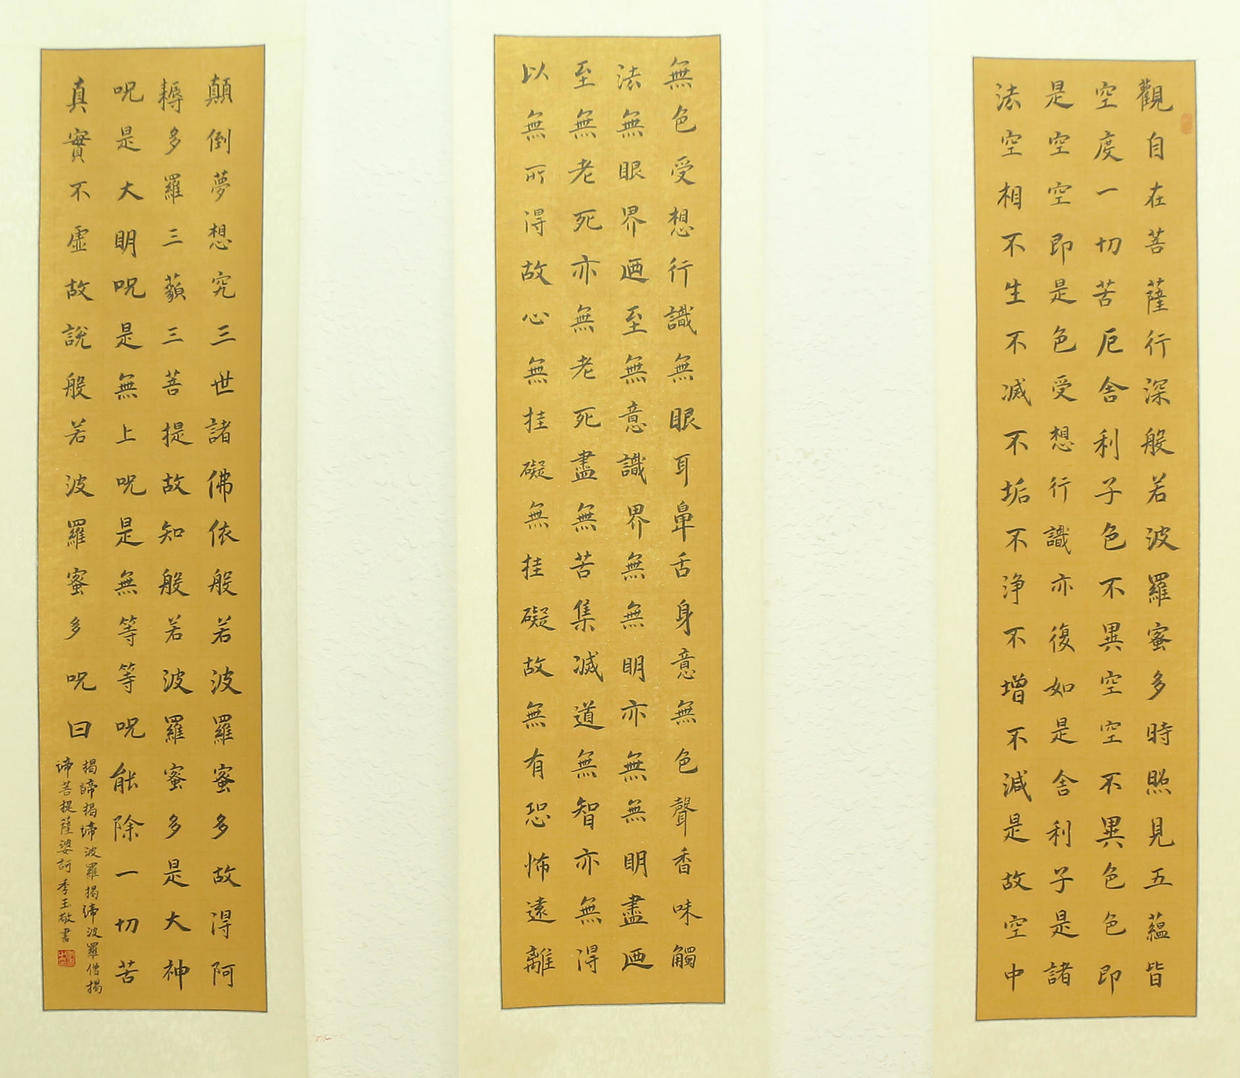 觀自在菩薩行深般若波羅蜜多時照見五蘊皆
空度一切苦厄舍利子色不異空空不異色色即
是空空即是色受想行識亦復如是舍利子是諸
法空相不生不滅不垢不淨不增不減是故空中
無色受想行識無眼耳鼻舌身意無色聲香味觸
法無眼界迺至無意識界無無明亦無無明盡迺
至無老死亦無老死盡無苦集滅道無智亦無得
以無所得故心無挂礙無挂礙故無有恐怖遠離
顛倒夢想究三世諸佛依般若波羅蜜多故得阿
耨多羅三藐三菩提故知般若波羅蜜多是大神
呪是大明呪是無上呪是無等等呪能除一切苦
真實不虛故說般若波羅蜜多呪曰
揭諦揭諦波羅揭諦波羅僧揭
諦菩提薩婆訶李玉敬書